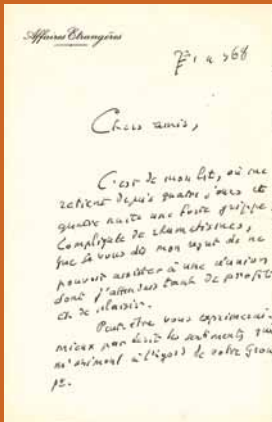 Affaires Étrangères
Chers amis,
C'est de mon lit, où me
retient depuis quatre jours et
quatre nuits une forte grippe,
compliquée de rhumatismes,
que je vous dis mon regret de ne
pouvoir assister à une réunion
dont j'attendais tant de profit
et de plaisir.
Peut-être vous exprimerai-
mieux par écrit les sentiments qui
m'animent à l'égard de votre Grou-
pe.